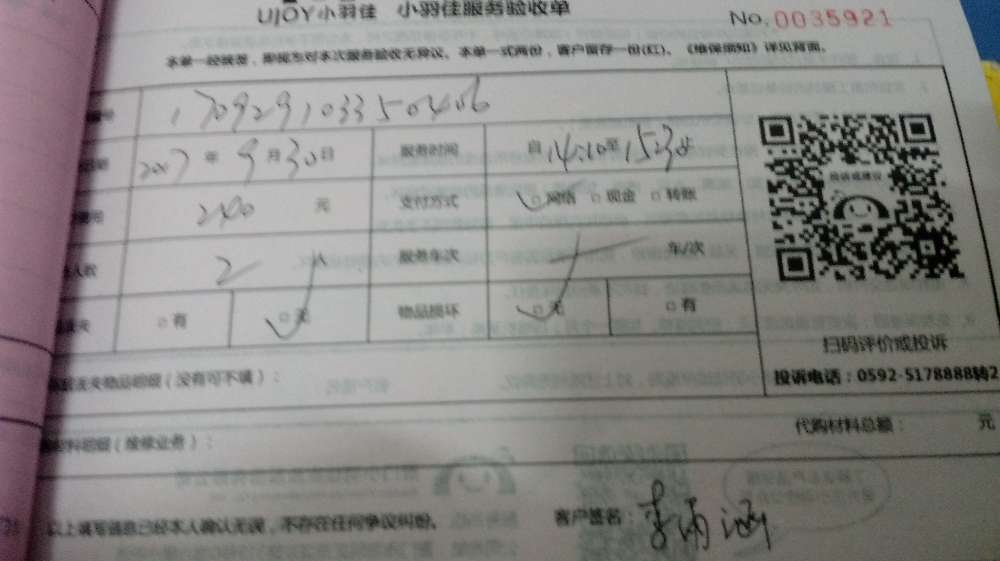 UJOY小羽佳 小羽佳服务验收单
No. 0035921
本单一经签署，即视为对本次服务验收无异议。本单一式两份，客户留存一份(红)。《维保须知》详见背面。
号 170929103350406
期 2017 年 9 月 30 日 服务时间 自 14:10 至 15:30
费用 240 元 支付方式 □网络 □现金 □转账
人数 2 人 服务车次 1 车/次
失 □有 □无 物品损坏 □无 □有
投诉或建议
扫码评价或投诉
投诉电话：0592-5178888转2
丢失物品明细（没有可不填）：
材料明细（维修业务）： 代购材料总额： 元
以上填写信息已经本人确认无误，不存在任何争议纠纷。 客户签名：李雨涵